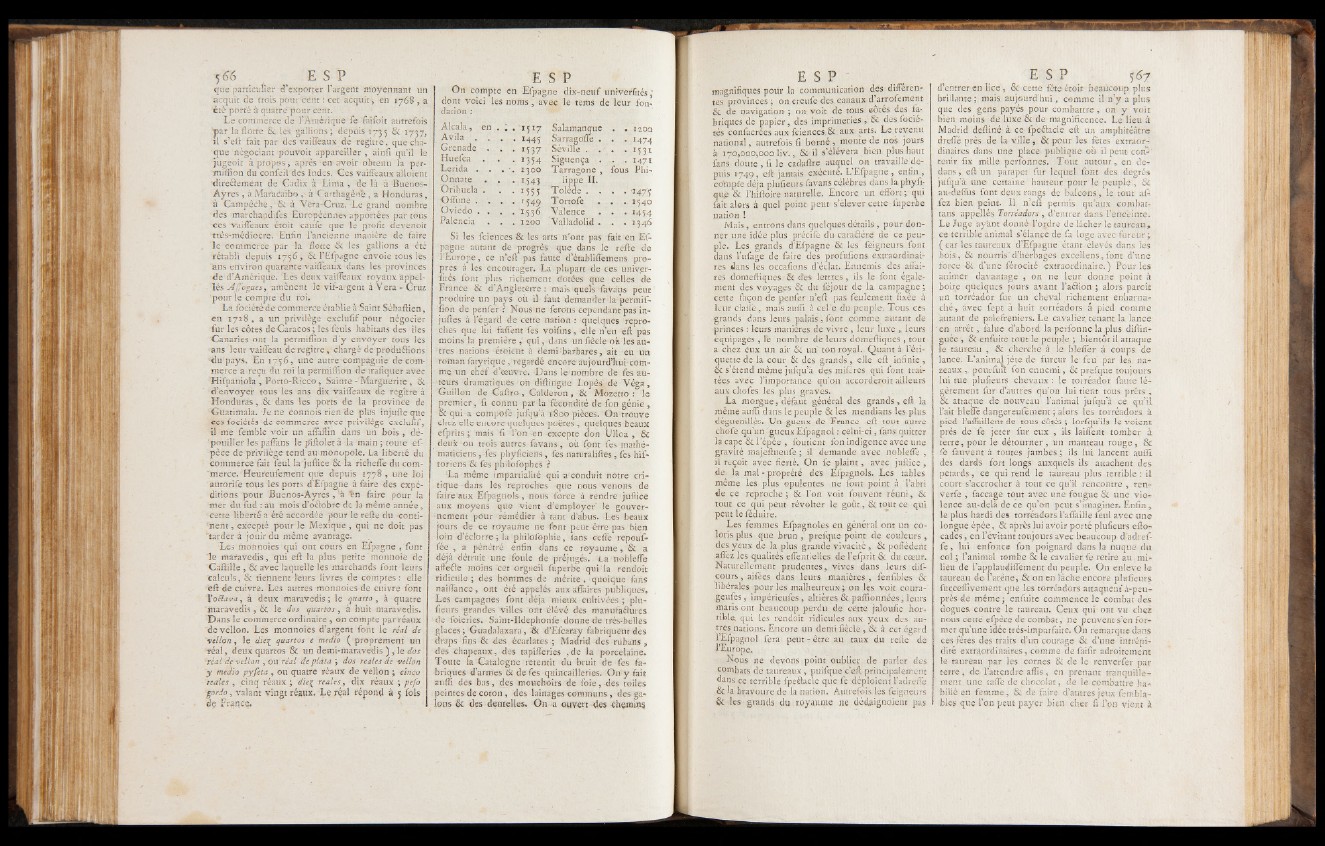 566 E S P
que particulier d'exporter l'argent moyennant un
acquit de trois pour cent : cet acquit, en 1768, a
été porté à quatre pour cent.
Le commerce de l'Amérique se faisoit autrefois
par la flotte & les gallions ; depuis 1735 & 1737,
il s'est fait par des vaisseaux de registre, que cha-
que négociant pouvoit appareiller, ainsi qu'il le
jugeoit à propos, après en avoir obtenu la per-
mission du conseil des Indes. Ces vaisseaux alloient
directement de Cadix à Lima, de là à Buenos-
Ayres, à Maracaïbo, à Carthagène, à Honduras,
à Campêche, & à Vera-Cruz. Le grand nombre
des marchandises Européennes apportées par tous
ces vaisseaux étoit cause que le profit devenoit
très-médiocre. Enfin l'ancienne manière de faire
le commerce par la flotte & les gallions a été
rétabli depuis 1756, & l'Espagne envoie tous les
ans environ quarante vaisseaux dans les provinces
de d'Amérique. Les deux vaisseaux royaux appel-
lés Assogues, amènent le vif-argent à Vera-Cruz
pour le compte du roi.
La société de commerce établie à Saint Sébastien,
en 1718, a un privilège exclusif pour négocier
sur les côtes de Caracos ; les seuls habitans des îles
Canaries ont la permission d'y envoyer tous les
ans leur vaisseau de registre, chargé de productions
du pays. En 1756, une autre compagnie de com-
merce a reçu du roi la permission de trafiquer avec
Hispaniola, Porto-Ricco, Sainte-Marguerite, &
d'envoyer tous les ans dix vaisseaux de registre à
Honduras, & dans les ports de la province de
Guatimala. Je ne connois rien de plus injuste que
ces sociétés de commerce avec privilège exclusif,
il me semble voir un assassin dans un bois, dé-
pouiller les passans le pistolet à la main ; toute es-
pèce de privilège tend au monopole. La liberté du
commerce fait seul la justice & la richesse du com-
merce. Heureusement que depuis 1778, une loi
autorise tous les ports d'Espagne à faire des expé-
ditions pour Buenos-Ayres, & en faire pour la
mer du sud : au mois d'octobre de la même année,
cette liberté a été accordée pour le reste du conti-
nent, excepté pour le Mexique, qui ne doit pas
tarder à jouir du même avantage.
Les monnoies qui ont cours en Espagne, sont
le maravedis, qui est la plus petite monnoie de
Castille, & avec laquelle les marchands font leurs
calculs, & tiennent leurs livres de comptes : elle
est de cuivre. Les autres monnoies de cuivre sont
l'octava, à deux maravedis ; le quarto, à quatre
maravedis, & le dos quartos, à huit maravedis.
Dans le commerce ordinaire, on compte par réaux
de vellon. Les monnoies d'argent sont le réal de
vellon, le diez quartos é medio (proprement un
réal, deux quartos & un demi-maravedis), le dos
réal de vellon, ou réal de plata ; dos reales de vellon
y medio pyseta, ou quatre réaux de vellon ; cinco
reales, cinq réaux ; diez reales, dix réaux ; peso
gordo, valant vingt réaux. Le réal répond à 5 sols
de France.
E S P
On compte en Espagne dix-neuf universités,
dont voici les noms, avec le tems de leur fon-
dation :
Alcala, en . . . 1517 Salamanque . . 1200
Avila . . . . 1445 Sarragosse . . . 1474
Grenade . . . 1537 Seville . . . . 1531
Huesca . . . 1354 Siguença . . . 1471
Lerida . . . . 1300 Tarragone, sous Phi-
Onnate . . . 1543 lippe II.
Orihuela . . . 1555 Tolède . . . . 1475
Ossune . . . . 1549 Tortose . . . 1540
Oviedo . . . . 1556 Valence . . . 1454
Palencia . . . 1200 Valladolid . . . 1346
Si les sciences & les arts n'ont pas fait en Es-
pagne autant de progrès que dans le reste de
l'Europe, ce n'est pas faute d'établissemens pro-
pres à les encourager. La plupart de ces univer-
sités sont plus richement dotées que celles de
France & d'Angleterre : mais quels savans peut
produire un pays où il faut demander la permis-
sion de penser ? Nous ne serons cependant pas in-
justes à l'égard de cette nation : quelques repro-
ches que lui fassent ses voisins, elle n'en est pas
moins la première, qui, dans un siècle où les au-
tres nations étoient à demi-barbares, ait eu un
roman satyrique, regardé encore aujourd'hui com-
me un chef d'œuvre. Dans le nombre de ses au-
teurs dramatiques on distingue Lopès de Véga,
Guillon de Castro, Calderon, & Mozetto : le
premier, si connu par la fécondité de son génie,
& qui a composé jusqu'à 1800 pièces. On trouve
chez elle encore quelques poëtes, quelques beaux
esprits ; mais si l'on en excepte don Ulloa, &
deux ou trois autres savans, où sont ses mathé-
maticiens, ses physiciens, ses naturalistes, ses his-
toriens & ses philosophes ?
La même impartialité qui a conduit notre cri-
tique dans les reproches que nous venons de
faire aux Espagnols, nous force à rendre justice
aux moyens que vient d'employer le gouver-
nement pour rémédier à tant d'abus. Les beaux
jours de ce royaume ne sont peut-être pas bien
loin d'éclorre ; la philosophie, sans cesse repous-
sée, a pénétré enfin dans ce royaume, & a
déjà détruit une foule de préjugés. La noblesse
affecte moins cet orgueil superbe qui la rendoit
ridicule ; des hommes de mérite, quoique sans
naissance, ont été appelés aux affaires publiques.
Les campagnes sont déjà mieux cultivées ; plu-
sieurs grandes villes ont élevé des manufactures
de soieries. Saint-Ildephonse donne de très-belles
glaces ; Guadalaxara, & d'Escaray fabriqueur des
draps fins & des écarlates ; Madrid des rubans,
des chapeaux, des tapisseries, de la porcelaine.
Toute la Catalogne retentit du bruit de ses fa-
briques d'armes & de ses quincailleries. On y fait
aussi des bas, des mouchoirs de soie, des toiles
peintes de coton, des lainages communs, des ga-
lons & des dentelles. On a ouvert des chemins
E S P
magnifiques pour la communication des différen-
tes provinces ; on creuse des canaux d'arrosement
& de navigation ; on voit de tous côtés des fa-
briques de papier, des imprimeries, & des socié-
tés consacrées aux sciences & aux arts. Le revenu
national, autrefois si borné, monte de nos jours
à 170,000,000 liv., & il s'élévera bien plus haut
sans doute, si le cadastre auquel on travaille de-
puis 1749, est jamais exécuté. L'Espagne, enfin,
compte déja plusieurs savans célèbres dans la physi-
que & l'histoire naturelle. Encore un effort ; qui
sait alors à quel point peut s'élever cette superbe
nation !
Mais, entrons dans quelques détails, pour don-
ner une idée plus précise du caractère de ce peu-
ple. Les grands d'Espagne & les seigneurs sont
dans l'usage de faire des profusions extraordinai-
res dans les occasions d'éclat. Ennemis des affai-
res domestiques & des lettres, ils le sont égale-
ment des voyages & du séjour de la campagne ;
cette façon de penser n'est pas seulement fixée à
leur classe, mais aussi à celle du peuple. Tous ces
grands dans leurs palais, sont comme autant de
princes : leurs manières de vivre, leur luxe, leurs
equipages, le nombre de leurs domestiques, tout
a chez eux un air & un ton royal. Quant à l'éti-
quette de la cour & des grands, elle est infinie,
& s'étend même jusqu'à des misères qui sont trai-
tées avec l'importance qu'on accorderoit ailleurs
aux choses les plus graves.
La morgue, défaut général des grands, est la
même aussi dans le peuple & les mendians les plus
déguenillés. Un gueux de France est tout autre
chose qu'un gueux Espagnol : celui-ci, sans quitter
la cape & l'épée, soutient son indigence avec une
gravité majestueuse ; il demande avec noblesse,
il reçoit avec fierté. On se plaint, avec justice,
de la mal-propreté des Espagnols. Les tables
même les plus opulentes ne sont point à l'abri
de ce reproche ; & l'on voit souvent réuni, &
tout ce qui peut révolter le goût, & tout ce qui
peut le séduire.
Les femmes Espagnoles en général ont un co-
loris plus que brun, presque point de couleurs,
des yeux de la plus grande vivacité, & possèdent
assez les qualités essentielles de l'esprit & du cœur.
Naturellement prudentes, vives dans leurs dis-
cours, aisées dans leurs manières, sensibles &
libérales pour les malheureux ; on les voit coura-
geuses, impérieuses, altières & passionnées, leurs
maris ont beaucoup perdu de cette jalousie hor-
rible qui les rendoit ridicules aux yeux des au-
tres nations. Encore un demi siècle, & à cet égard
l'Espagnol sera peut-être au taux du reste de
l'Europe.
Nous ne devons point oublier de parler des
combats de taureaux, puisque c'est principalement
dans ce terrible spectacle que se déploient l'adresse
& la bravoure de la nation. Autrefois les seigneurs
& les grands du royaume ne dédaignoient pas
E S P 567
d'entrer en lice, & cette fête étoit beaucoup plus
brillante ; mais aujourd'hui, comme il n'y a plus
que des gens payés pour combattre, on y voit
bien moins de luxe & de magnificence. Le lieu à
Madrid destiné à ce spectacle est un amphithéâtre
dressé près de la ville, & pour les fêtes extraor-
dinaires dans une place publique où il peut con-
tenir six mille personnes. Tout autour, en de-
dans, est un parapet sur lequel sont des degrés
jusqu'à une certaine hauteur pour le peuple, &
au-dessus sont deux rangs de balcons, le tout as-
sez bien peint. Il n'est permis qu'aux combat-
tans appellés Torréadors, d'entrer dans l'enceinte.
Le Juge ayant donné l'ordre de lâcher le taureau,
ce terrible animal s'élance de sa loge avec fureur ;
(car les taureaux d'Espagne étant élevés dans les
bois, & nourris d'herbages excellens, sont d'une
force & d'une férocité extraordinaire.) Pour les
animer davantage, on ne leur donne point à
boire quelques jours avant l'action ; alors paroît
un torréador sur un cheval richement enharna-
ché, avec sept à huit torréadors à pied comme
autant de palefreniers. Le cavalier tenant la lance
en arrêt, salue d'abord la personne la plus distin-
guée, & ensuite tout le peuple ; bientôt il attaque
le taureau, & cherche à le blesser à coups de
lance. L'animal jète de fureur le feu par les na-
zeaux, poursuit son ennemi, & presque toujours
lui tue plusieurs chevaux : le torréador saute lé-
gérement sur d'autres qu'on lui tient tous prêts,
& attaque de nouveau l'animal jusqu'à ce qu'il
l'ait blessé dangereusement ; alors les torréadors à
pied l'assaillent de tous côtés ; lorsqu'ils le voient
près de se jeter sur eux, ils laissent tomber à
terre, pour le détourner, un manteau rouge, &
se sauvent à toutes jambes ; ils lui lancent aussi
des dards fort longs auxquels ils attachent des
petards, ce qui rend le taureau plus terrible : il
court s'accrocher à tout ce qu'il rencontre, ren-
verse, saccage tout avec une fougue & une vio-
lence au-delà de ce qu'on peut s'imaginer. Enfin,
le plus hardi des torréadors l'assaille seul avec une
longue épée, & après lui avoir porté plusieurs esto-
cades, en l'évitant toujours avec beaucoup d'adres-
se, lui enfonce son poignard dans la nuque du
col ; l'animal tombe & le cavalier se retire au mi-
lieu de l'applaudissement du peuple. On enlève le
taureau de l'arène, & on en lâche encore plusieurs
successivement que les torréadors attaquent à-peu-
près de même ; ensuite commence le combat des
dogues contre le taureau. Ceux qui ont vu chez
nous cette espèce de combat, ne peuvent s'en for-
mer qu'une idée très-imparfaite. On remarque dans
ces fêtes des traits d'un courage & d'une intrépi-
dité extraordinaires, comme de saisir adroitement
le taureau par les cornes & de le renverser par
terre, de l'attendre assis, en prenant tranquille-
ment une tasse de chocolat, de le combattre ha-
billé en femme, & de faire d'autres jeux sembla-
bles que l'on peut payer bien cher si l'on vient à